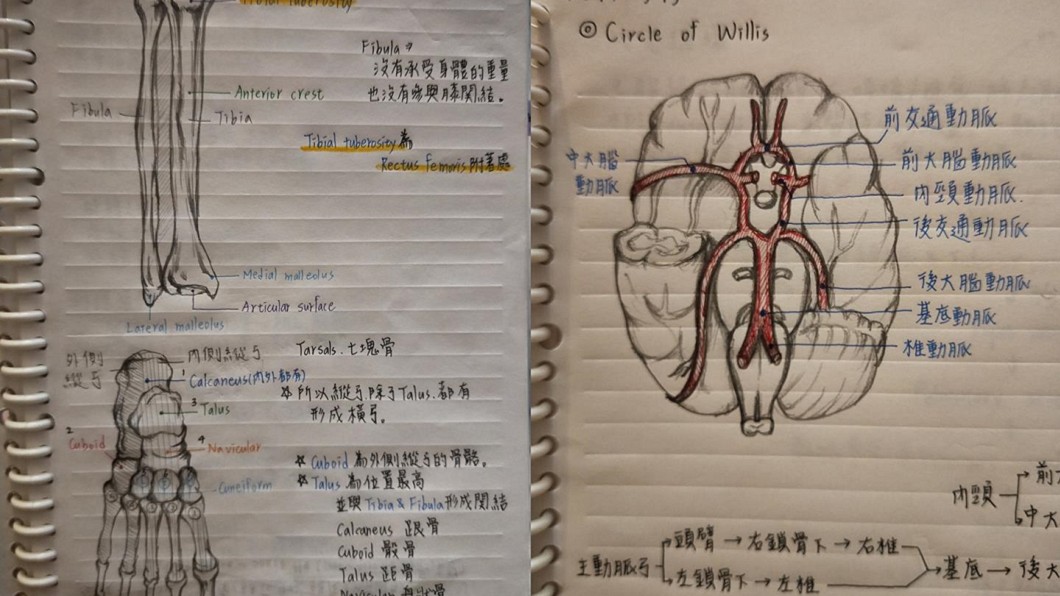 Tibial tuberosity
Fibula:
沒有承受身體的重量
也沒有參與膝關結。
Anterior crest
Fibula
Tibia
Tibial tuberosity為
Rectus femoris附著處
Medial malleolus
Articular surface
Lateral malleolus
外側
縱弓
內側縱弓
Tarsals.七塊骨
1
Calcaneus(內外都有)
☆所以縱弓除了Talus.都有
形成橫弓。
3
Talus
2
Cuboid
4
Navicular
☆ Cuboid 為外側縱弓的骨骼。
☆ Talus 為位置最高
並與Tibia & Fibula形成關結
Cuneiform
Calcaneus 跟骨
Cuboid 骰骨
Talus 距骨
Navicular 舟狀骨
◎ Circle of Willis
前交通動脈
中大腦
動脈
前大腦動脈
內頸動脈.
後交通動脈
後大腦動脈
基底動脈
椎動脈
內頸
前大
中大
主動脈弓
頭臂 → 右鎖骨下 → 右椎
左鎖骨下 → 左椎
→基底 → 後大